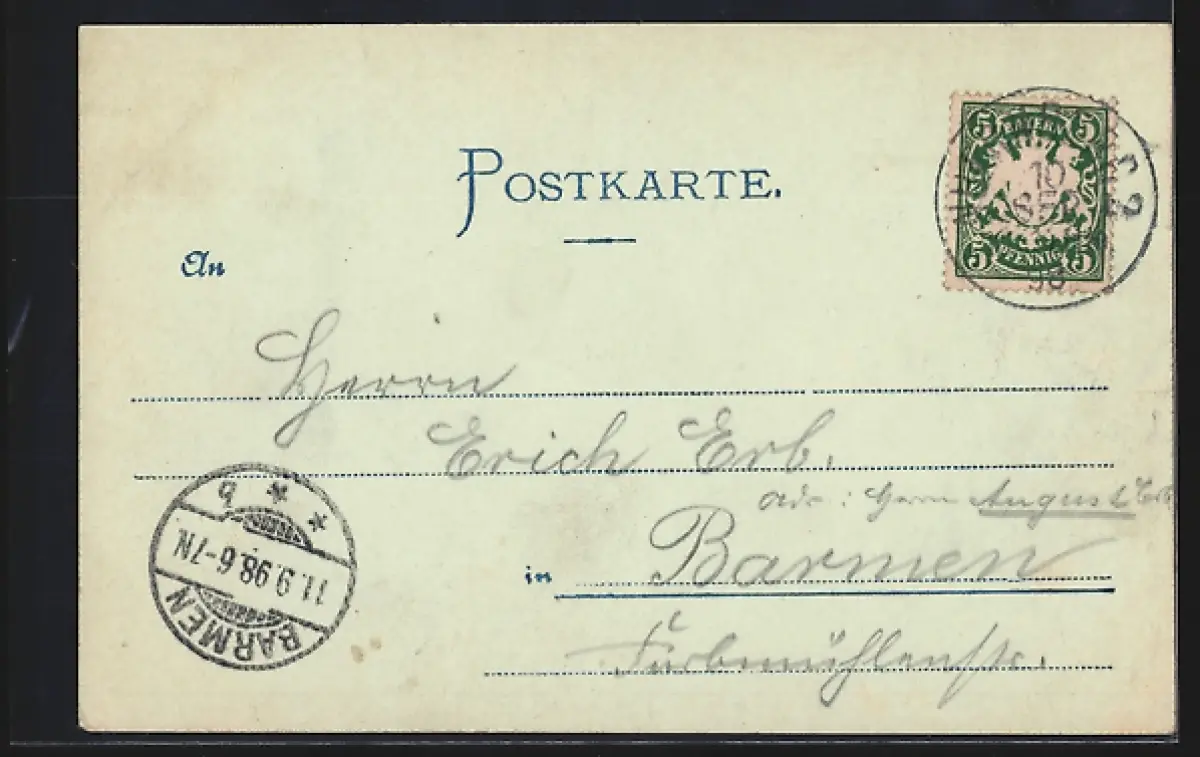 POSTKARTE.
5 BAYERN 5
5 PFENNIG 5
10
SEP
2
An
Herrn
Erich Erb.
Adr: Herrn August Erb
in Barmen
Farbmühlenstr.
BARMEN
11.9.98.6-7N.
* * b